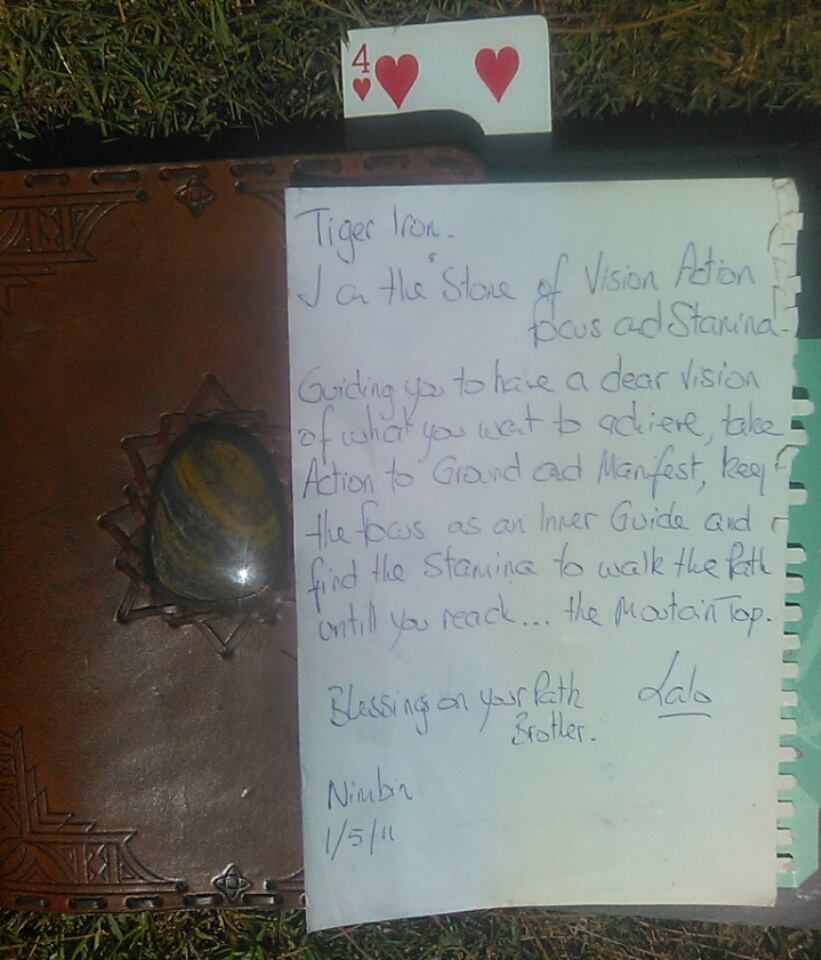 4
Tiger Iron.
I am the "Stone of Vision Action
focus and Stamina.
Guiding you to have a clear vision
of what you want to achieve, take
Action to Ground and Manifest, keep
the focus as an Inner Guide and
find the Stamina to walk the Path
untill you reach... the Moutain Top.
Blessing on your Path Lalo
Brother.
Nimbin
1/5/11